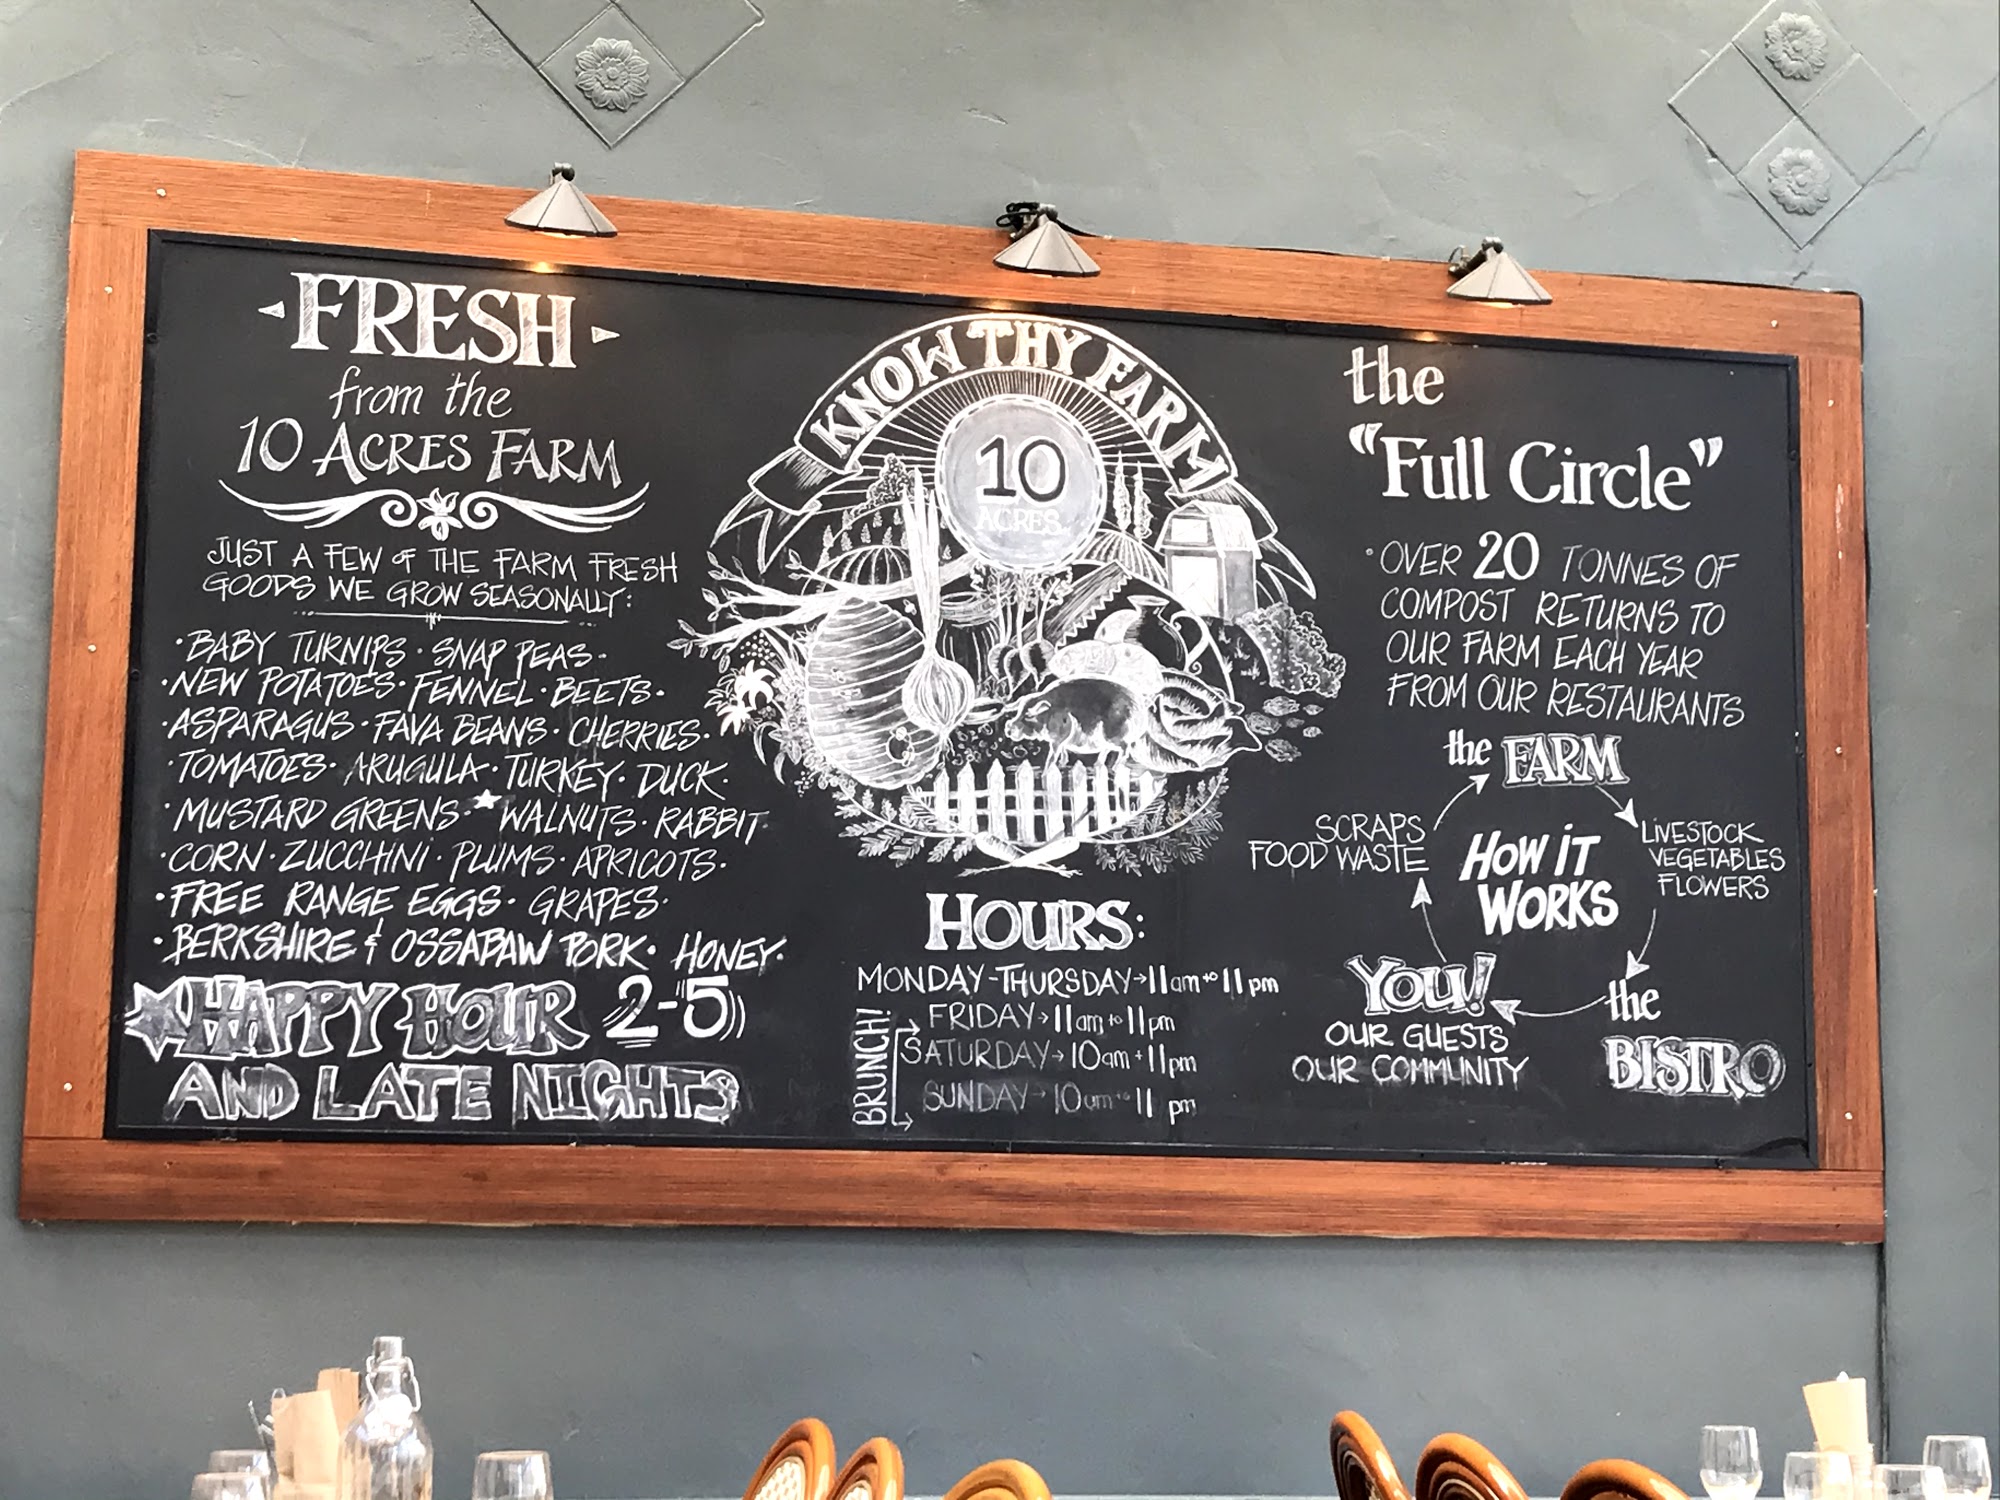 FRESH
from the
10 ACRES FARM
JUST A FEW of THE FARM FRESH
GOODS WE GROW SEASONALLY:
• BABY TURNIPS • SNAP PEAS •
• NEW POTATOES • FENNEL • BEETS •
• ASPARAGUS • FAVA BEANS • CHERRIES •
• TOMATOES • ARUGULA • TURKEY • DUCK •
• MUSTARD GREENS • WALNUTS • RABBIT •
• CORN • ZUCCHINI • PLUMS • APRICOTS •
• FREE RANGE EGGS • GRAPES •
• BERKSHIRE & OSSABAW PORK • HONEY •
HAPPY HOUR 2-5
AND LATE NIGHTS
KNOW THY FARM
10
ACRES
HOURS:
MONDAY-THURSDAY→11am to 11pm
FRIDAY→11am to 11pm
BRUNCH!
SATURDAY→10am + 11pm
SUNDAY→10am to 11 pm
the
"Full Circle"
• OVER 20 TONNES OF
COMPOST RETURNS TO
OUR FARM EACH YEAR
FROM OUR RESTAURANTS
the FARM
LIVESTOCK
VEGETABLES
FLOWERS
the
BISTRO
YOU!
OUR GUESTS
OUR COMMUNITY
SCRAPS
FOOD WASTE
HOW iT
WORKS